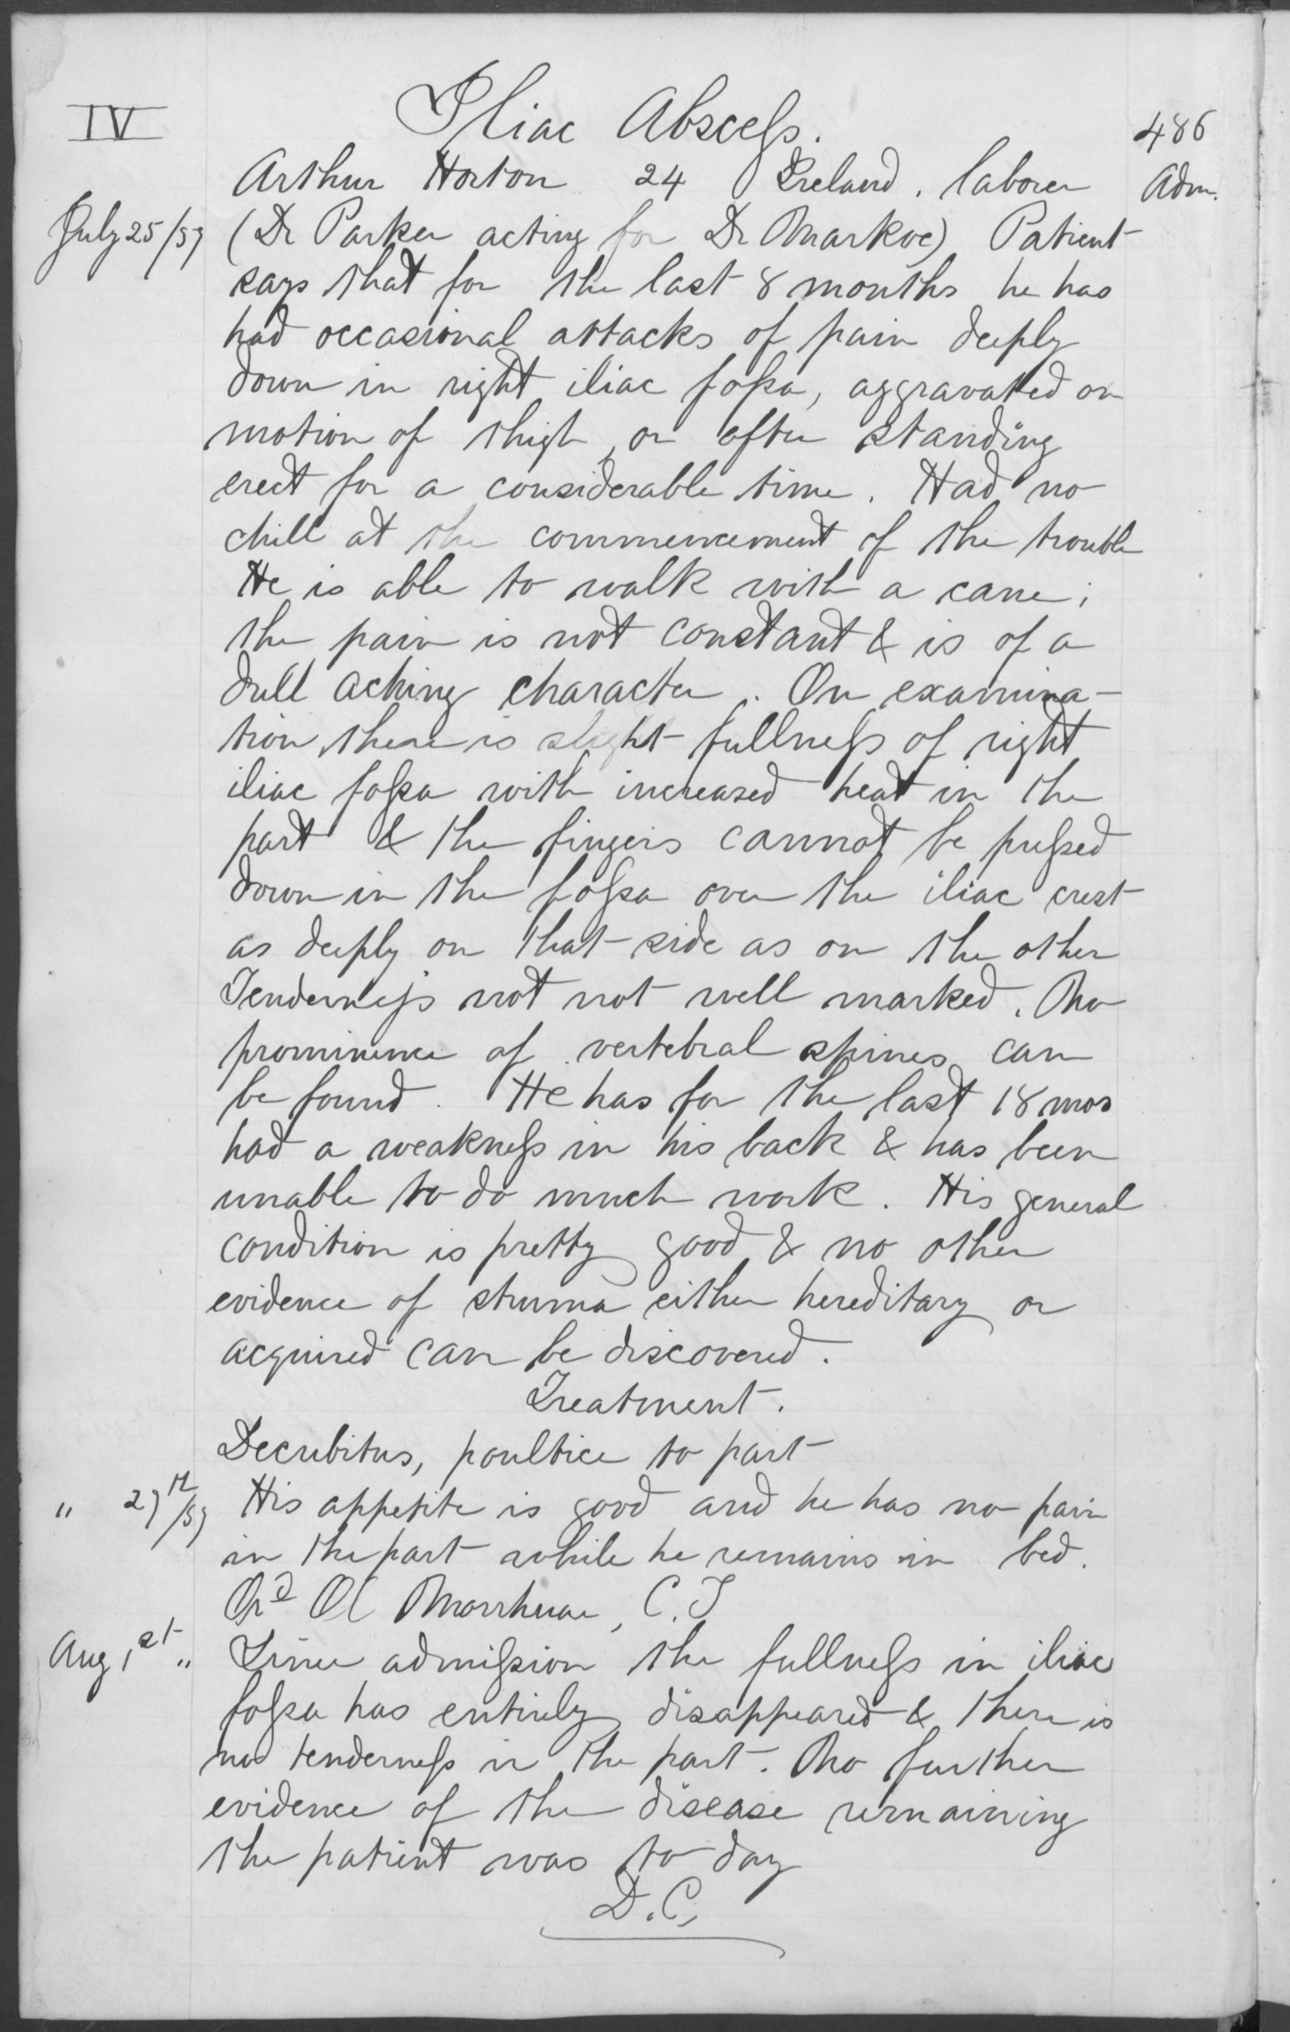 IV
Iliac Abscess.
486
Arthur Horton 24 Ireland. laborer Adm.
July 25/59 (Dr Parker acting for Dr Markoe) Patient
says that for the last 8 months he has
had occasional attacks of pain deeply
down in right iliac fossa, aggravated on
motion of thigh, or after standing
erect for a considerable time. Had no
chill at the commencement of the trouble
He is able to walk with a cane;
the pain is not constant & is of a
dull aching character. On examina-
tion there is slight fullness of right
iliac fossa with increased heat in the
part & the fingers cannot be pressed
down in the fossa over the iliac crest
as deeply on that side as on the other
Tenderness not not well marked. No
prominence of vertebral spines can
be found. He has for the last 18 mos
had a weakness in his back & has been
unable to do much work. His general
condition is pretty good & no other
evidence of struma either hereditary or
acquired can be discovered.
Treatment.
Decubitus, poultice to part
" 29th/59 His appetite is good and he has no pain
in the part while he remains in bed.
Ord Ol Morrhuae, C.T
Aug 1st " Since admission the fullness in iliac
fossa has entirely disappeared & there is
no tenderness in the part. No further
evidence of the disease remaining
the patient was to day
D.C.